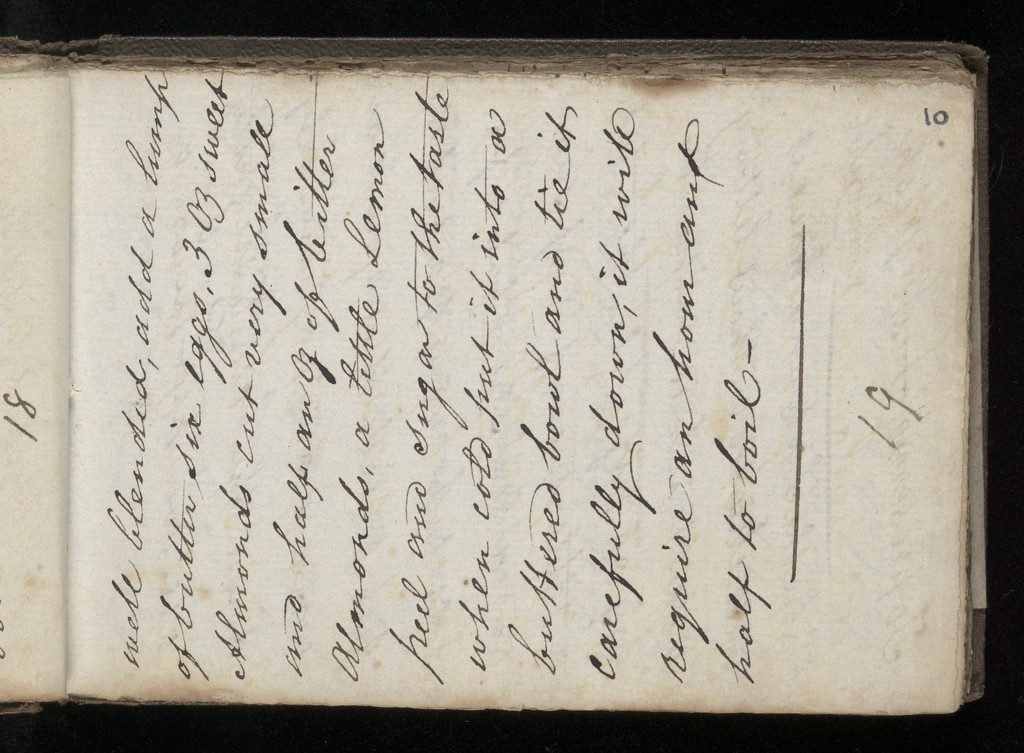 18
well blended, add a lump
of butter, six eggs, 3 Oz sweet
Almonds cut very small
and half an Oz of bitter
Almonds, a little Lemon
peel and sugar to the taste
when cold put it into a
buttered bowl and tie it
carefully down, it will
require an hour and
half to boil —
19
10